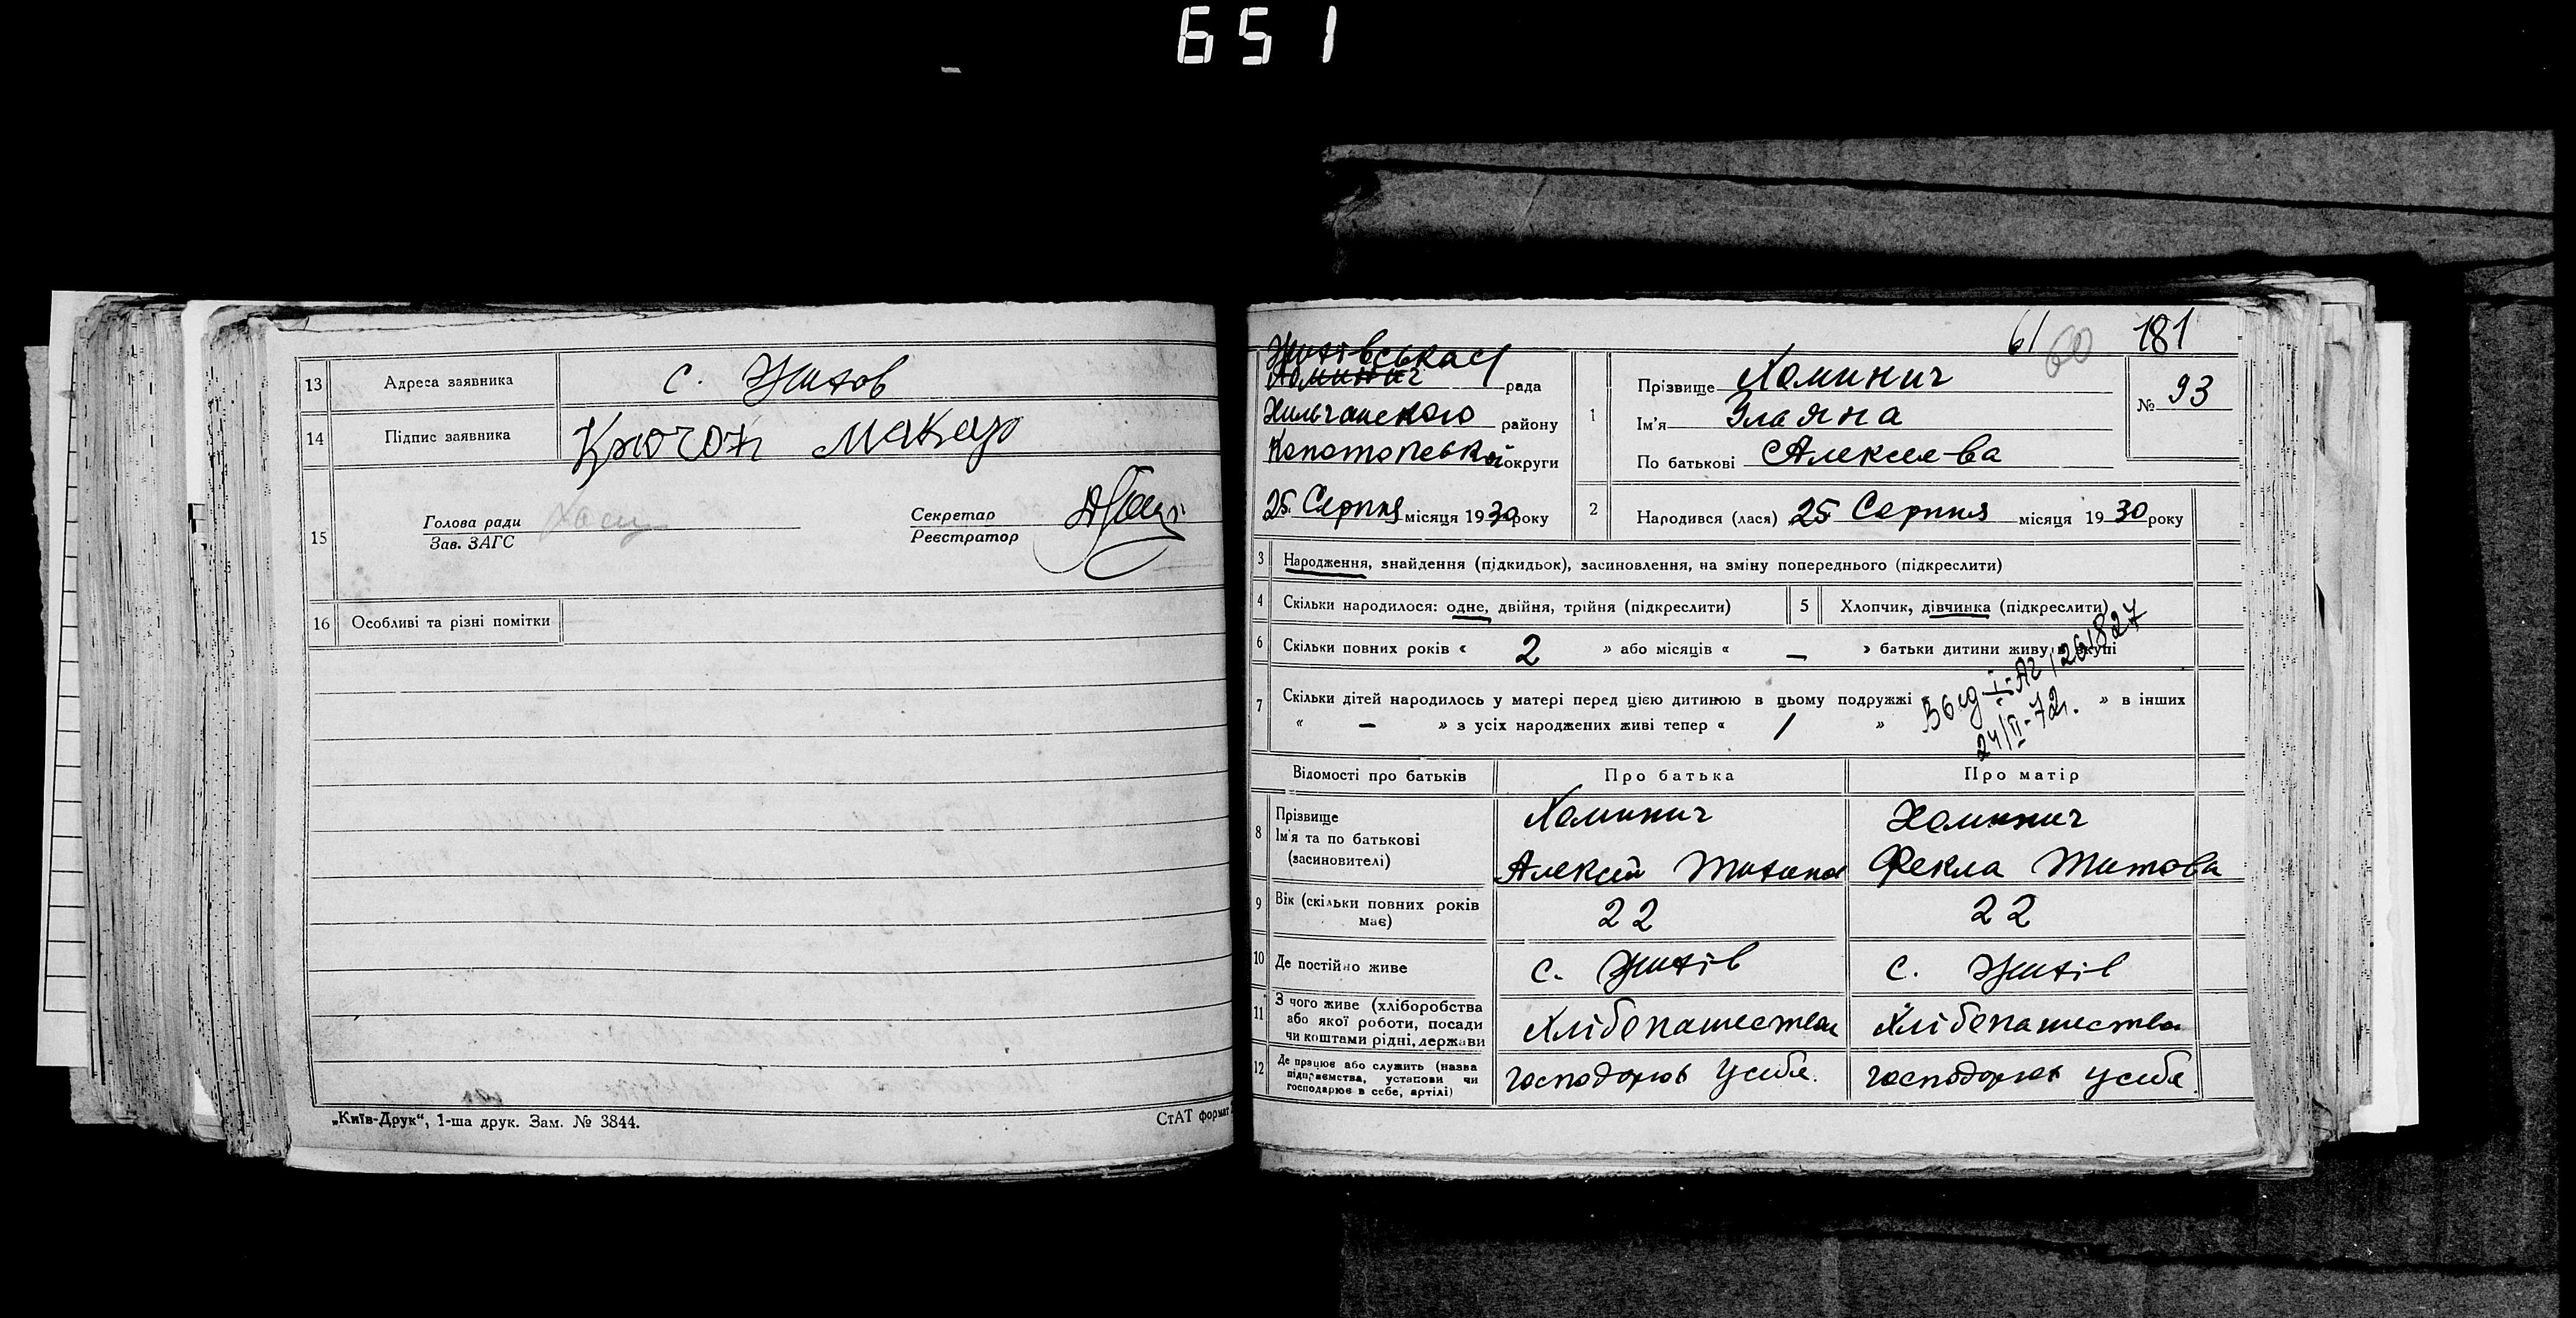 651
13 Адреса заявника с. Жихов
14 Підпис заявника Крючок Макар
15 Голова ради
Зав. ЗАГС
Секретар
Реєстратор
16 Особливі та різні помітки
„Київ-Друк“, 1-ша друк. Зам. № 3844.
СтАТ формат
61 60 181
Жихівська
Хоминич рада
Хильчанского району
Конотопської округи
25 Серпня місяця 1930 року
1 Прізвище Хоминич
Ім'я Уляна
По батькові Алексеева
№ 93
2 Народився (лася) 25 Серпня місяця 1930 року
3 Народження, знайдення (підкидьок), засиновлення, на зміну попереднього (підкреслити)
4 Скільки народилося: одне, двійня, трійня (підкреслити)
5 Хлопчик, дівчинка (підкреслити)
6 Скільки повних років « 2 » або місяців « — » батьки дитини живуть вкупі
7 Скільки дітей народилось у матері перед цією дитиною в цьому подружжі » в інших
« — » з усіх народжених живі тепер « 1 »
24/II-72г.
Відомості про батьків Про батька Про матір
8 Прізвище
Ім'я та по батькові
(засиновителі)
Хоминич
Алексей
Хоминич
Фекла Титова
9 Вік (скільки повних років має) 22 22
10 Де постійно живе с. Жихів с. Жихів
11 З чого живе (хліборобства
або якої роботи, посади
чи коштами рідні, держави
Хлібопашества Хлібопашества
12 Де працює або служить (назва
підприємства, установи чи
господарює в себе, артілі)
господорюв усебе. господорюв усебе.